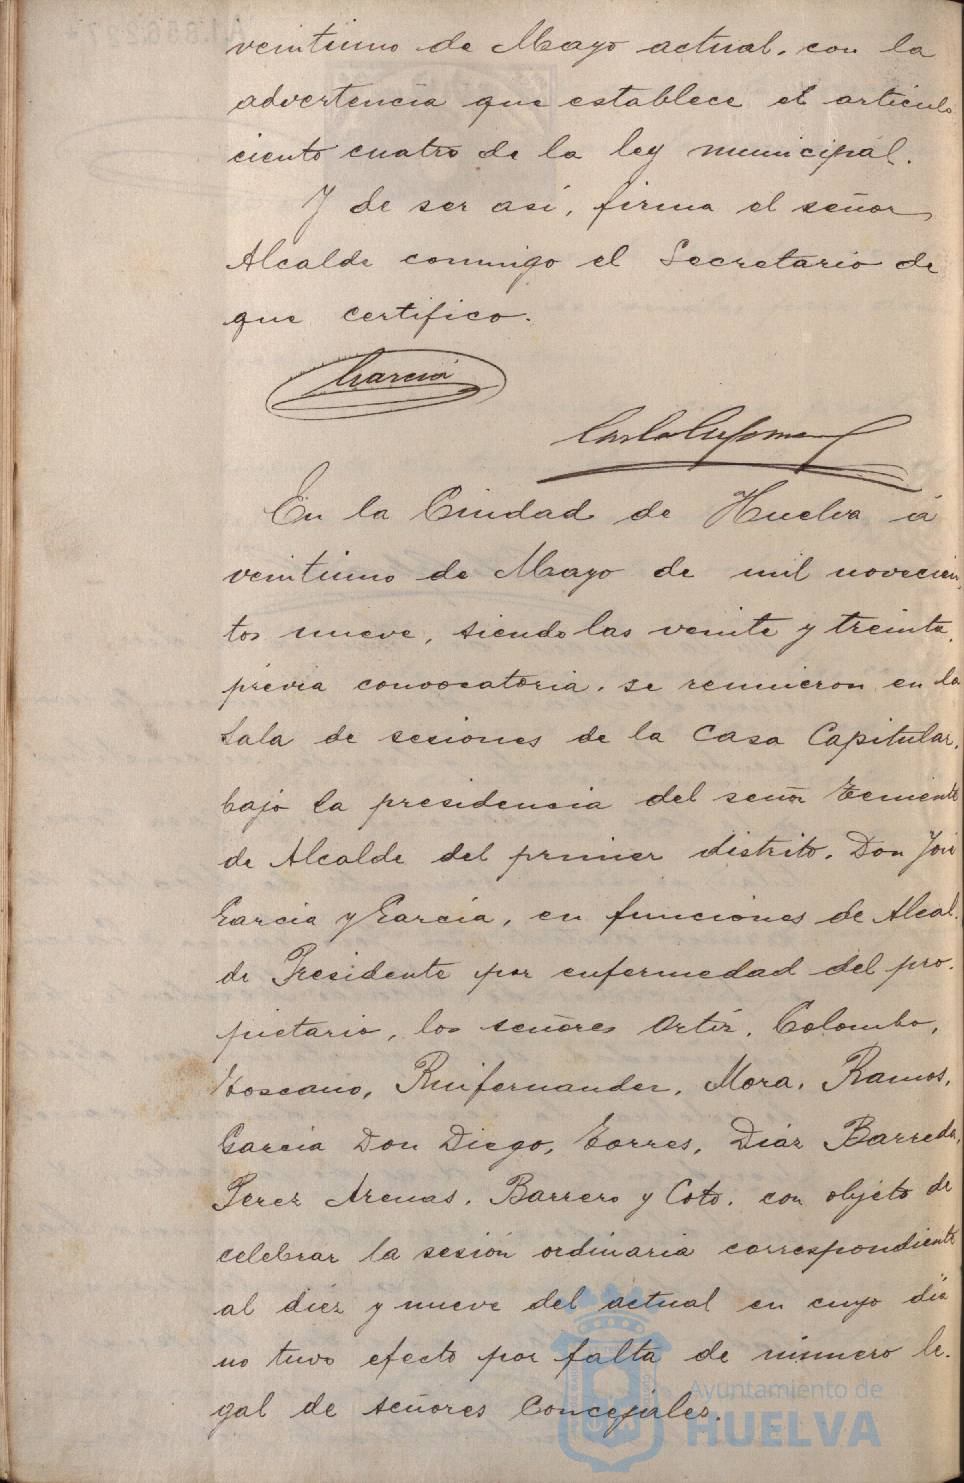 veintiuno de Mayo actual, con la
advertencia que establece el articulo
ciento cuatro de la ley municipal.
Y de ser así, firma el señor
Alcalde conmigo el Secretario de
que certifico.
Garcia
En la Ciudad de Huelva á
veintiuno de Mayo de mil novecien
tos nueve, siendo las veinte y treinta,
prévia convocatoria, se reunieron en la
Sala de sesiones de la Casa Capitular,
bajo la presidencia del señor teniente
de Alcalde del primer distrito, Don José
Garcia y Garcia, en funciones de Alcal.
de Presidente por enfermedad del pro.
pietario, los señores Ortiz, Colombo,
Toscano, Ruifernandez, Mora, Ramos,
Garcia Don Diego, Torres, Diáz Barreda,
Perez Arenas, Barrero y Coto, con objeto de
celebrar la sesión ordinaria correspondiente
al diéz y nueve del actual en cuyo día
no tuvo efecto por falta de número le.
gal de señores Concejales.
Ayuntamiento de
HUELVA